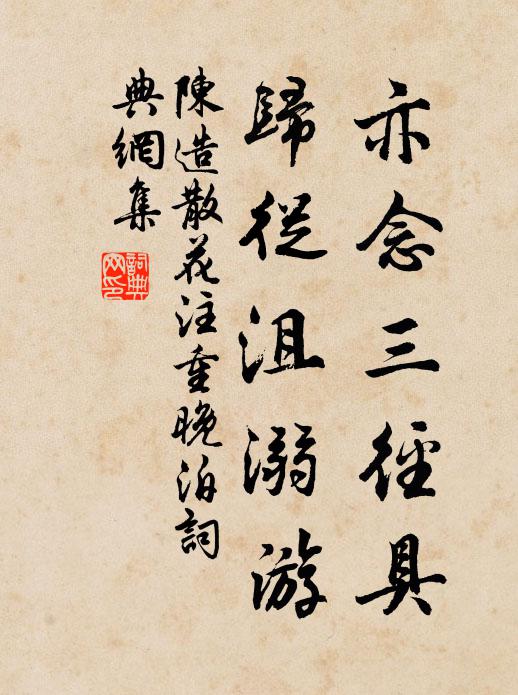 亦念三徑具
歸從沮溺游
陳造散花注重晚泊詞
典網集
詞典网印